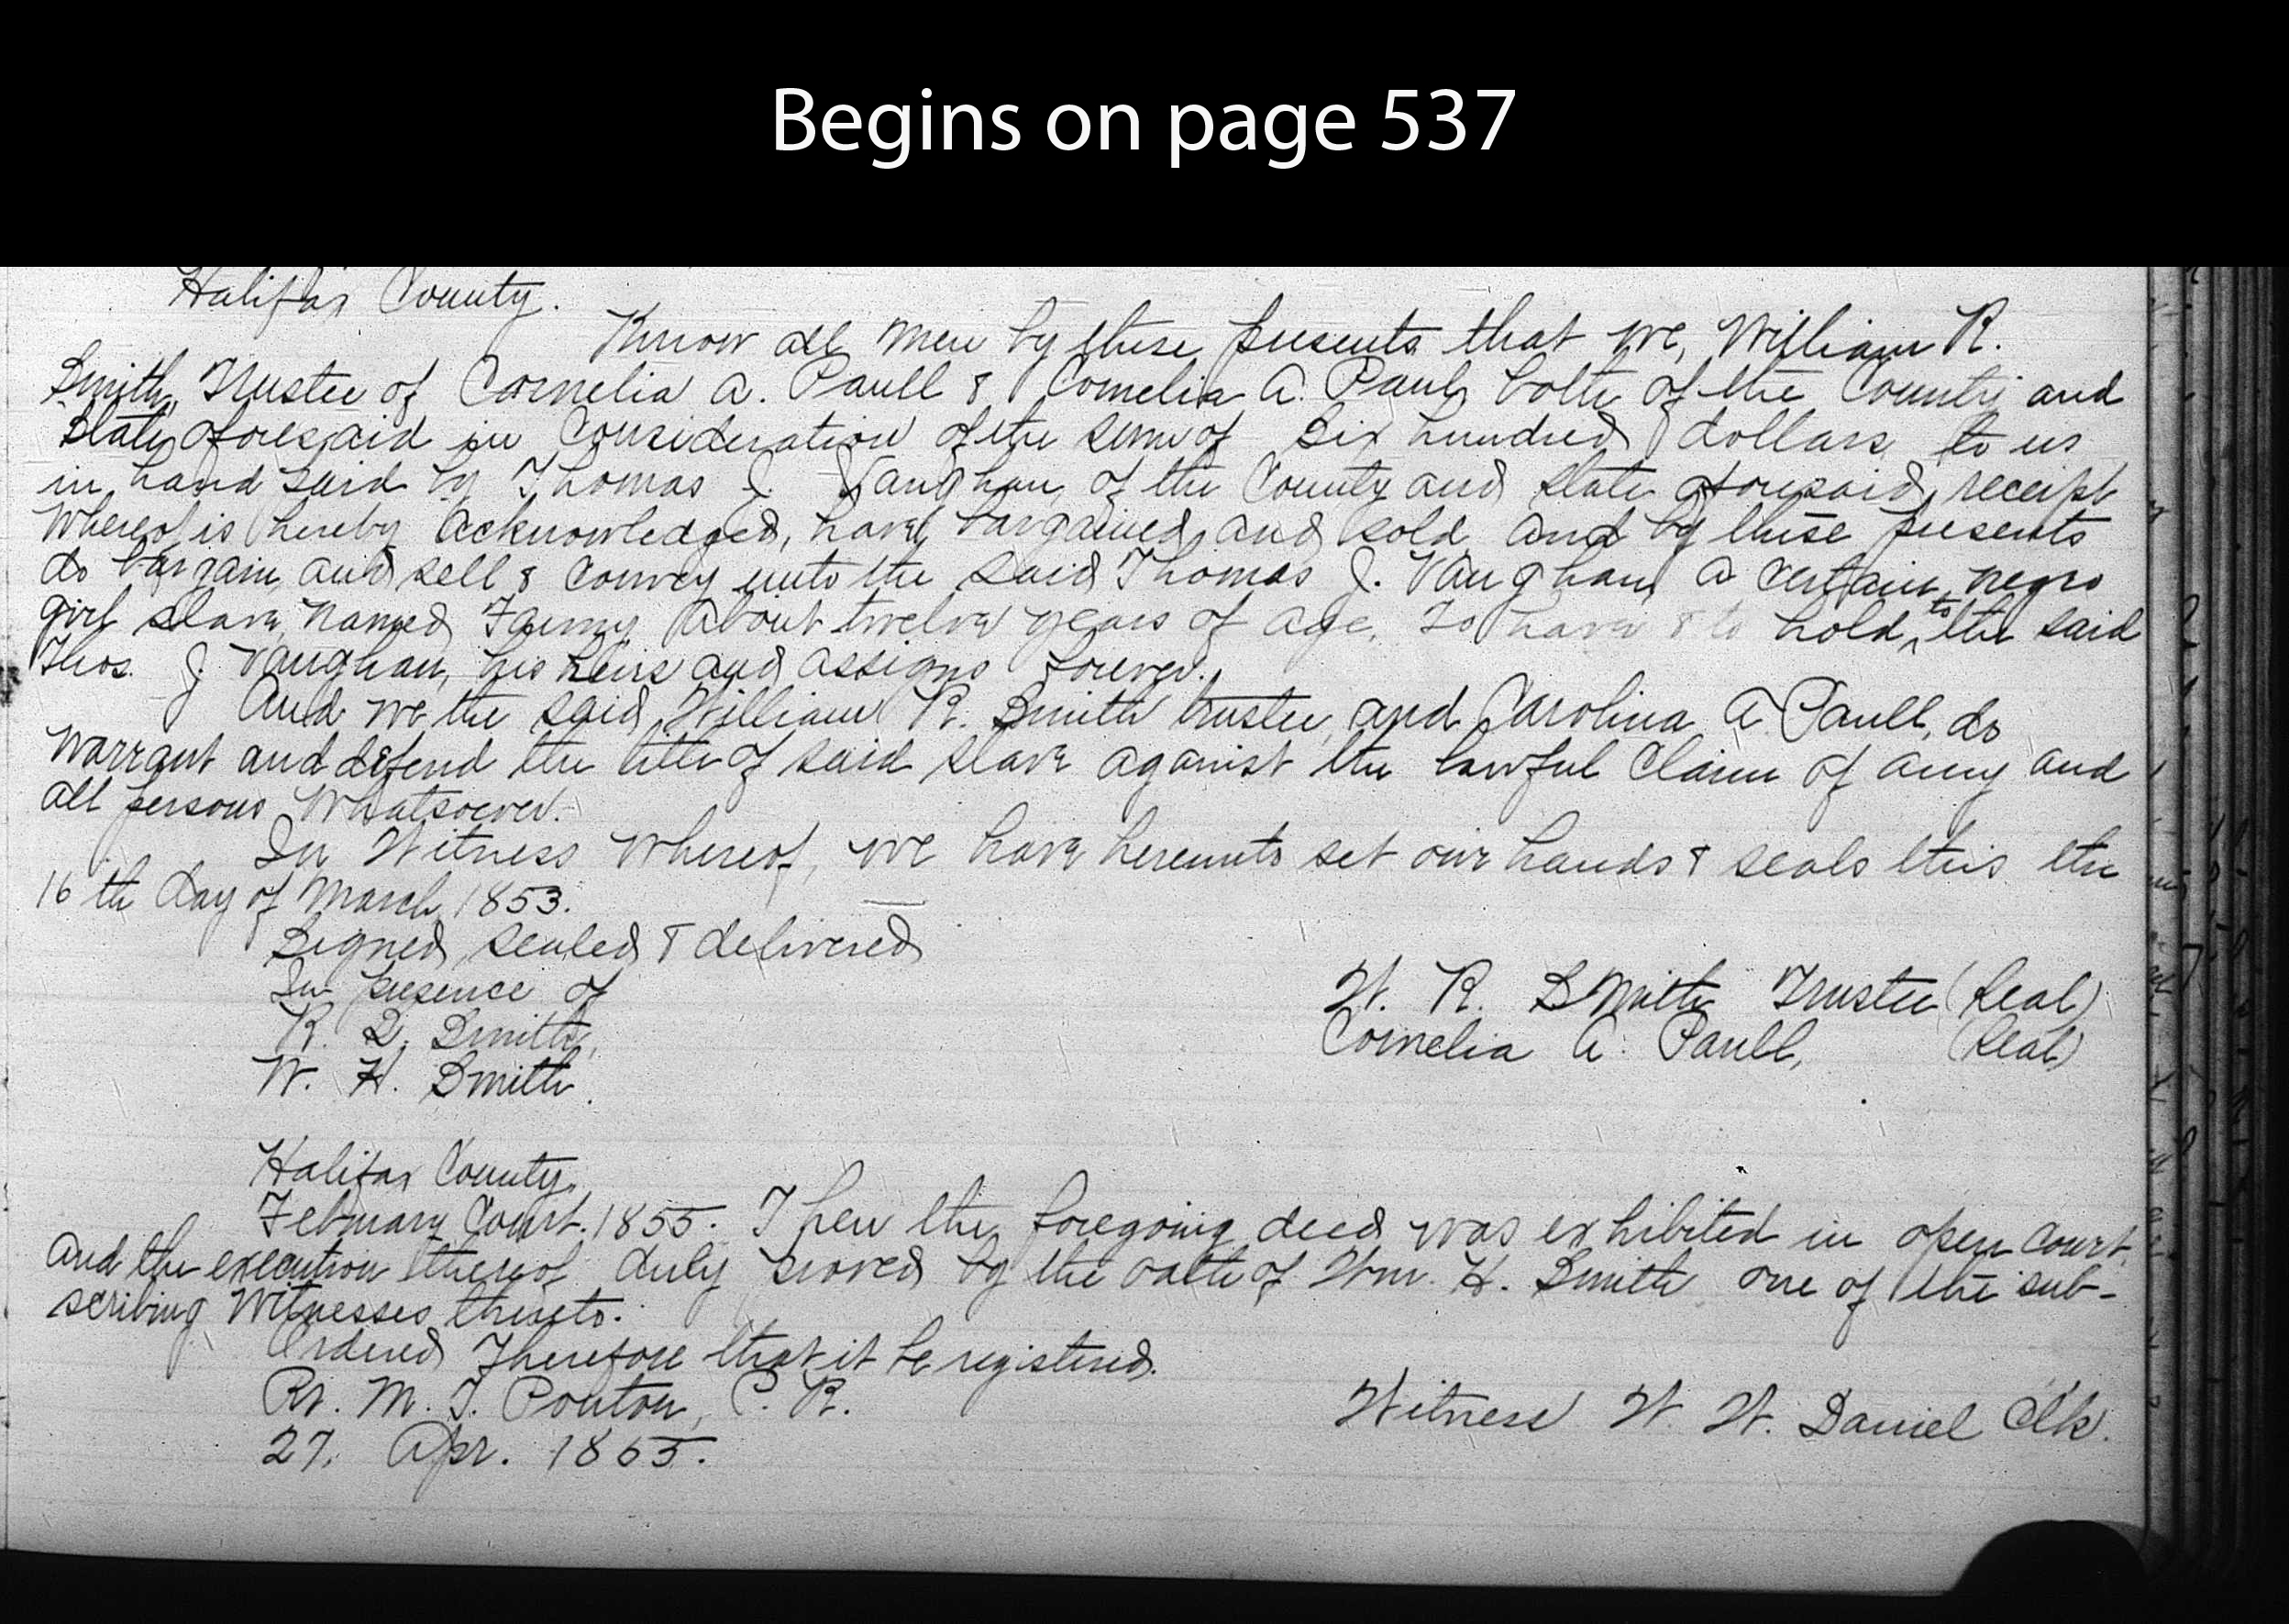 Begins on page 537
Halifax County.
Know all men by these presents that we, William R.
Smith, Trustee of Cornelia A. Paull & Cornelia A. Paull, both of the County and
State aforesaid in Consideration of the sum of Six hundred dollars to us
in hand paid by Thomas J. Vaughan, of the County and State aforesaid, receipt
whereof is hereby acknowledged, have bargained and sold and by these presents
do bargain, and sell & convey unto the said Thomas J. Vaughan, a certain negro
girl slave named Fanny about twelve years of age, To have & to hold, to the said
Thos. J. Vaughan, his heirs and assigns forever.
And we the said, William R. Smith trustee, and Carolina A Paull, do
warrant and defend the title of said slave against the lawful claim of any and
all persons whatsoever.
In Witness whereof, we have hereunto set our hands & seals this the
16th day of March 1853.
Signed, sealed & delivered
In presence of
R. Smith,
W. H. Smith.
W. R. Smith Trustee (Seal)
Cornelia A. Paull, (Seal)
Halifax County,
February Court. 1855. Then the foregoing deed was exhibited in open court,
and the execution thereof duly proved by the oath of Wm. H. Smith one of the sub-
scribing Witnesses thereto.
Ordered Therefore that it be registered.
M. T. Ponton, P. R.
Witness W. W. Daniel Clk.
27, Apr. 1855.